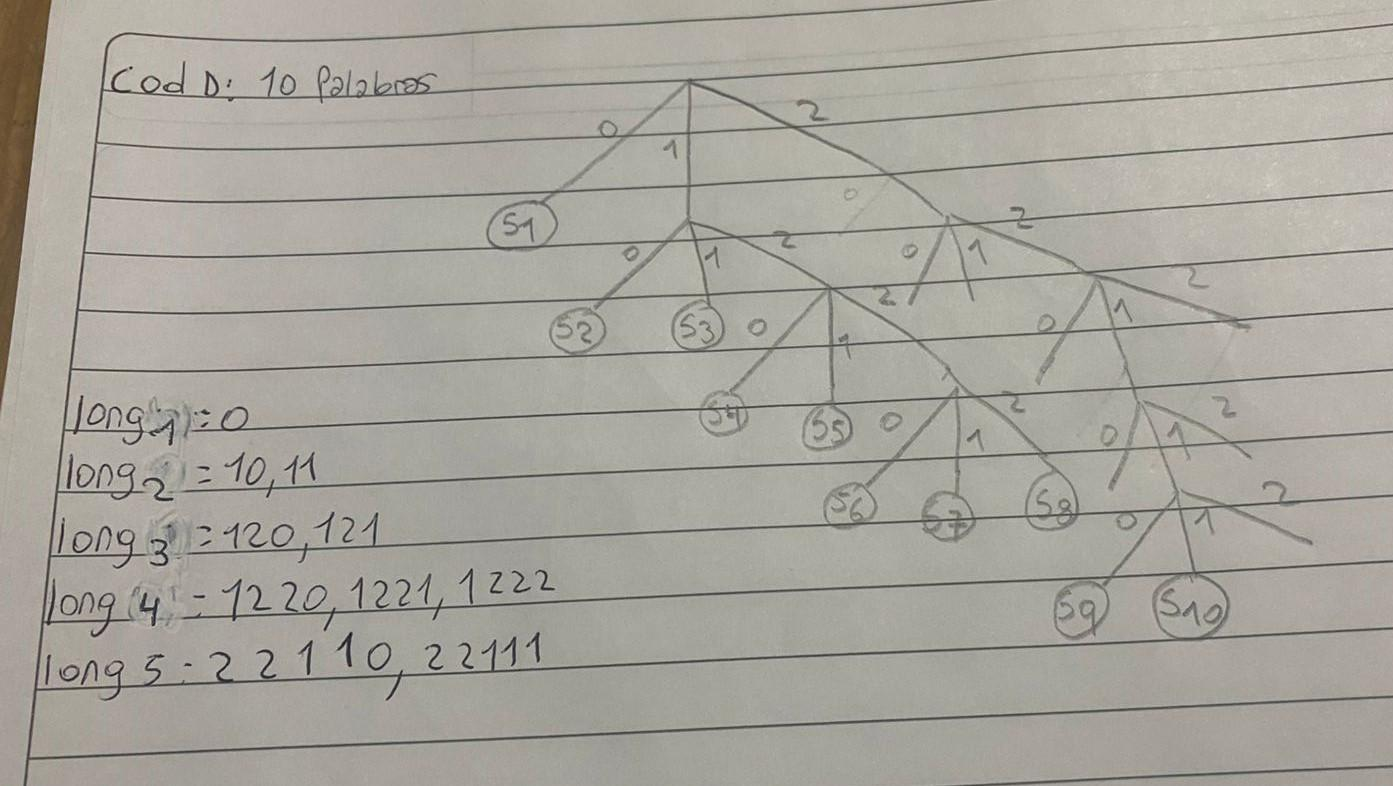 Cod D: 10 Palabras
0 1 2
S1
0 1 2
0
0 1 2
S2 S3
0 1 2
0 1 2
S4 S5
0 1 2
0 1 2
S6 S7 S8
0 1 2
S9 S10
long 1 = 0
long 2 = 10, 11
long 3 = 120, 121
long 4 = 1220, 1221, 1222
long 5 = 22110, 22111